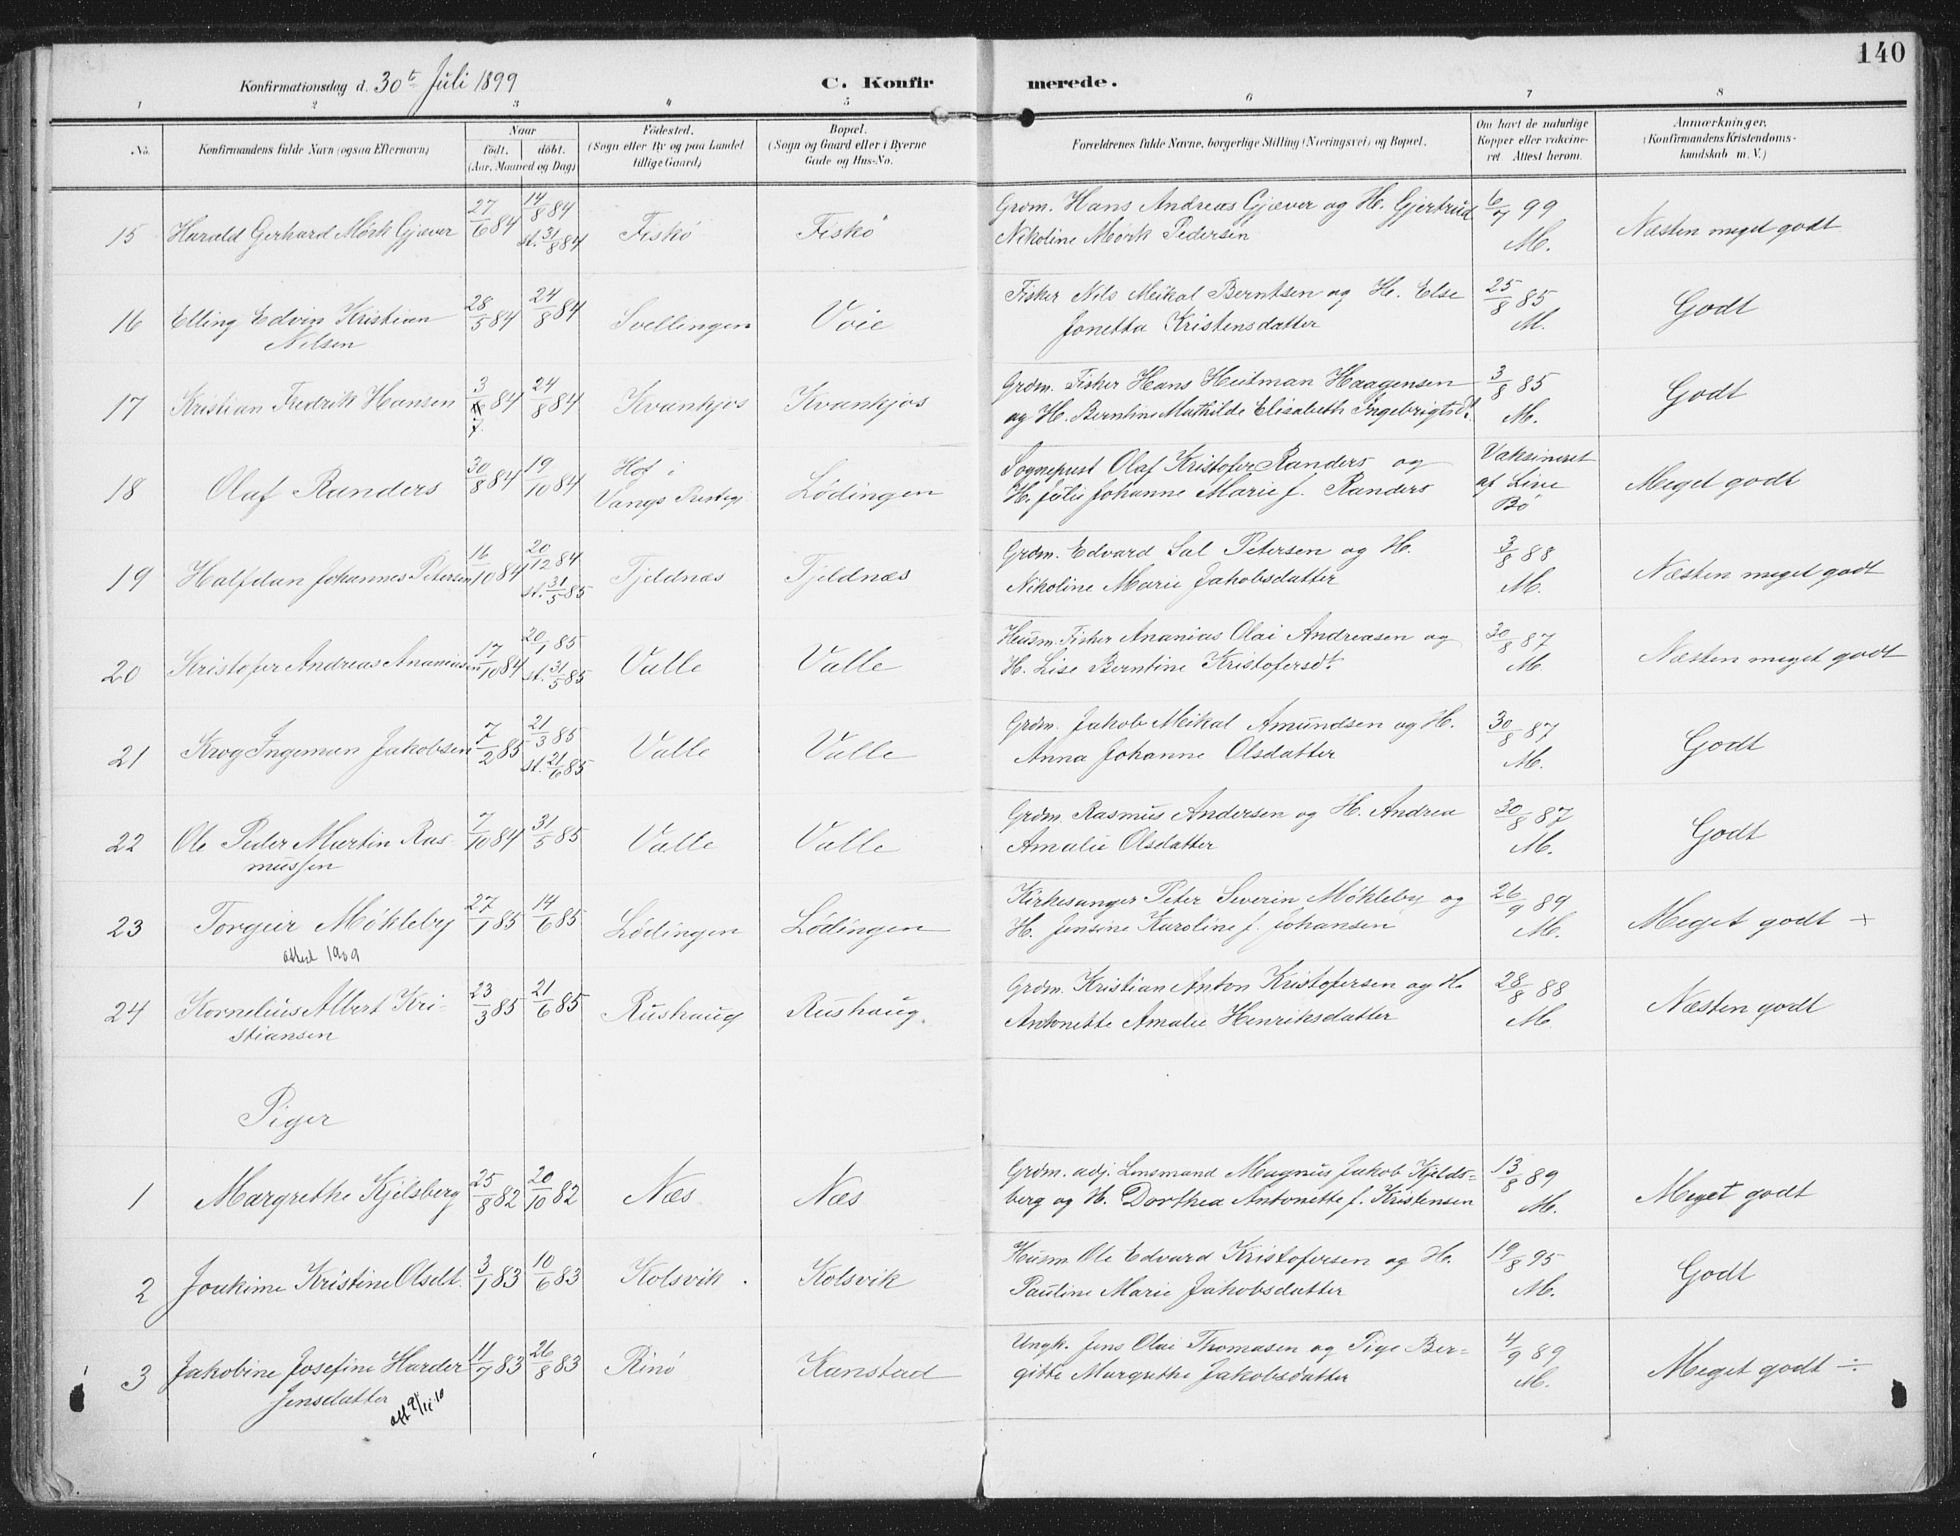 140
Konfirmationsdag d. 30te Juli 1899 C. Konfirmerede.
1 2 3 4 5 6 7 8
No. Konfirmandens fulde Navn (ogsaa Efternavn) Naar født. døbt. (Aar, Maaned og Dag) Fødested. (Sogn eller By og paa Landet tillige Gaard) Bopæl. (Sogn og Gaard eller i Byerne Gade og Hus-No. Forældrenes fulde Navne, borgerlige Stilling (Næringsvei) og Bopæl. Om havt de naturlige Kopper eller vakcineret Attest herom. Anmærkninger. (Konfirmandens Kristendomskundskab m. V.)
15 Harald Gerhard Mørk Gjæver 27/6 84 14/8 84 st. 31/8 84 Fiskø Fiskø Grdm. Hans Andreas Gjæver og H. Gjertrud 6/7 99
Nikoline Mørk Pedersen M. Næsten meget godt
16 Elling Edvin Kristian 28/5 84 24/8 84 Svellingen Voie Fisker Nils Meikal Berntsen og H. Else 25/8 85 Godt
Nilsen Jonetta Kristensdatter M.
17 Kristian Fredrik Hansen 3/7 84 24/8 84 Kvankjos Kvankjos Grdm. Fisker Hans Heitman Haagensen 3/8 85 Godt
og H. Berntine Mathilde Elisabeth Ingebrigtsdt. M.
18 Olaf Randers 30/8 84 19/10 84 Hof i Vangs Prestegj. Lødingen Sogneprest Olaf Kristofer Randers og Vaksineret Meget godt
H. Julie Johanne Marie f. Randers af Live Bø
19 Halfdan Johannes Petersen 16/10 84 20/12 84 st. 31/5 85 Tjeldnæs Tjeldnæs Grdm. Edvard Sal Petersen og H. 3/8 88 Næsten meget godt
Nikoline Marie Jakobsdatter M.
20 Kristofer Andreas Ananiasen 17/10 84 20/1 85 st. 31/5 85 Valle Valle Husm. Fisker Ananias Olai Andreasen og 30/8 87 Næsten meget godt
H. Lise Berntine Kristofersdt. M.
21 Krog Ingeman Jakobsen 7/2 85 21/3 85 st. 21/6 85 Valle Valle Grdm. Jakob Meikal Amundsen og H. 30/8 87 Godt
Anna Johanne Olsdatter M.
22 Ole Peder Martin Ras- 7/10 84 31/5 85 Valle Valle Grdm. Rasmus Andersen og H. Andrea 30/8 87 Godt
mussen Amalie Olsdatter M.
23 Torgeir Møkleby 27/1 85 14/6 85 Lødingen Lødingen Kirkesanger Peter Severin Møkleby og 26/9 89 Meget godt +
1909 H. Jensine Karoline f. Johansen M.
24 Kornelius Albert Kri- 23/3 85 21/6 85 Rushaug Rushaug. Grdm. Kristian Anton Kristofersen og H. 28/8 88 Næsten godt
stiansen Antonette Amalie Henriksdatter M.
Piger
1 Margrethe Kjelsberg 25/8 82 20/10 82 Næs Næs Grdm. adj. Lensmand Magnus Jakob Kjelds- 13/8 89 Meget godt
berg og H. Dorthea Antonette f. Kristensen M.
2 Joakime Kristine Olsdt. 3/1 83 10/6 83 Kolsvik Kolsvik Husm. Ole Edvard Kristofersen og H. 19/8 95 Godt
Pauline Marie Jakobsdatter M.
3 Jakobine Josefine Harder 11/7 83 26/8 83 Rinø Kanstad Ungk. Jens Olai Thomasen og Pige Ber- 4/9 89 Meget godt ÷
Jensdatter gitte Margrethe Jakobsdatter M.